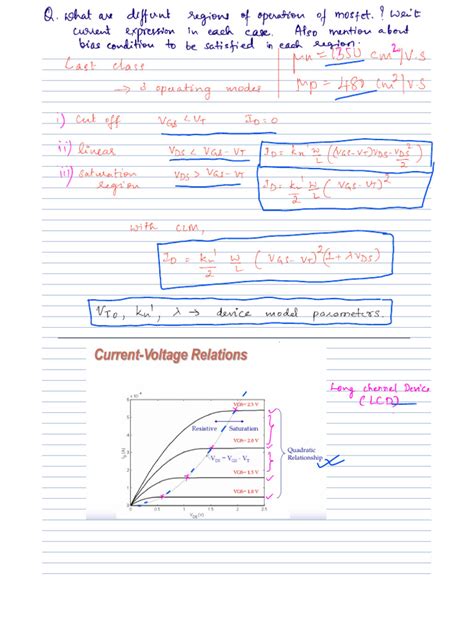 Q. What are diffunt regions of operation of mosfet.? Write
current expression in each case. Also mention about
bias condition to be satisfied in each region.
Last class
μn = 1350 cm²/V.S
→ 3 operating modes
μp = 480 cm²/V.S
i) Cut off VGS < VT ID = 0
ii) linear VDS < VGS - VT ID = kn' W/L ((VGS-VT)VDS - VDS²/2)
iii) saturation region VDS > VGS - VT ID = kn'/2 W/L (VGS - VT)²
with CLM,
ID = kn'/2 W/L (VGS - VT)² (1 + λ VDS)
VT0, kn', λ → device model parameters.
Current-Voltage Relations
Long channel Device
(LCD)
VGS= 2.5 V
Resistive Saturation
VGS= 2.0 V
Quadratic
Relationship
VDS = VGS - VT
VGS= 1.5 V
VGS= 1.0 V
0 0.5 1 1.5 2 2.5
VDS (V)